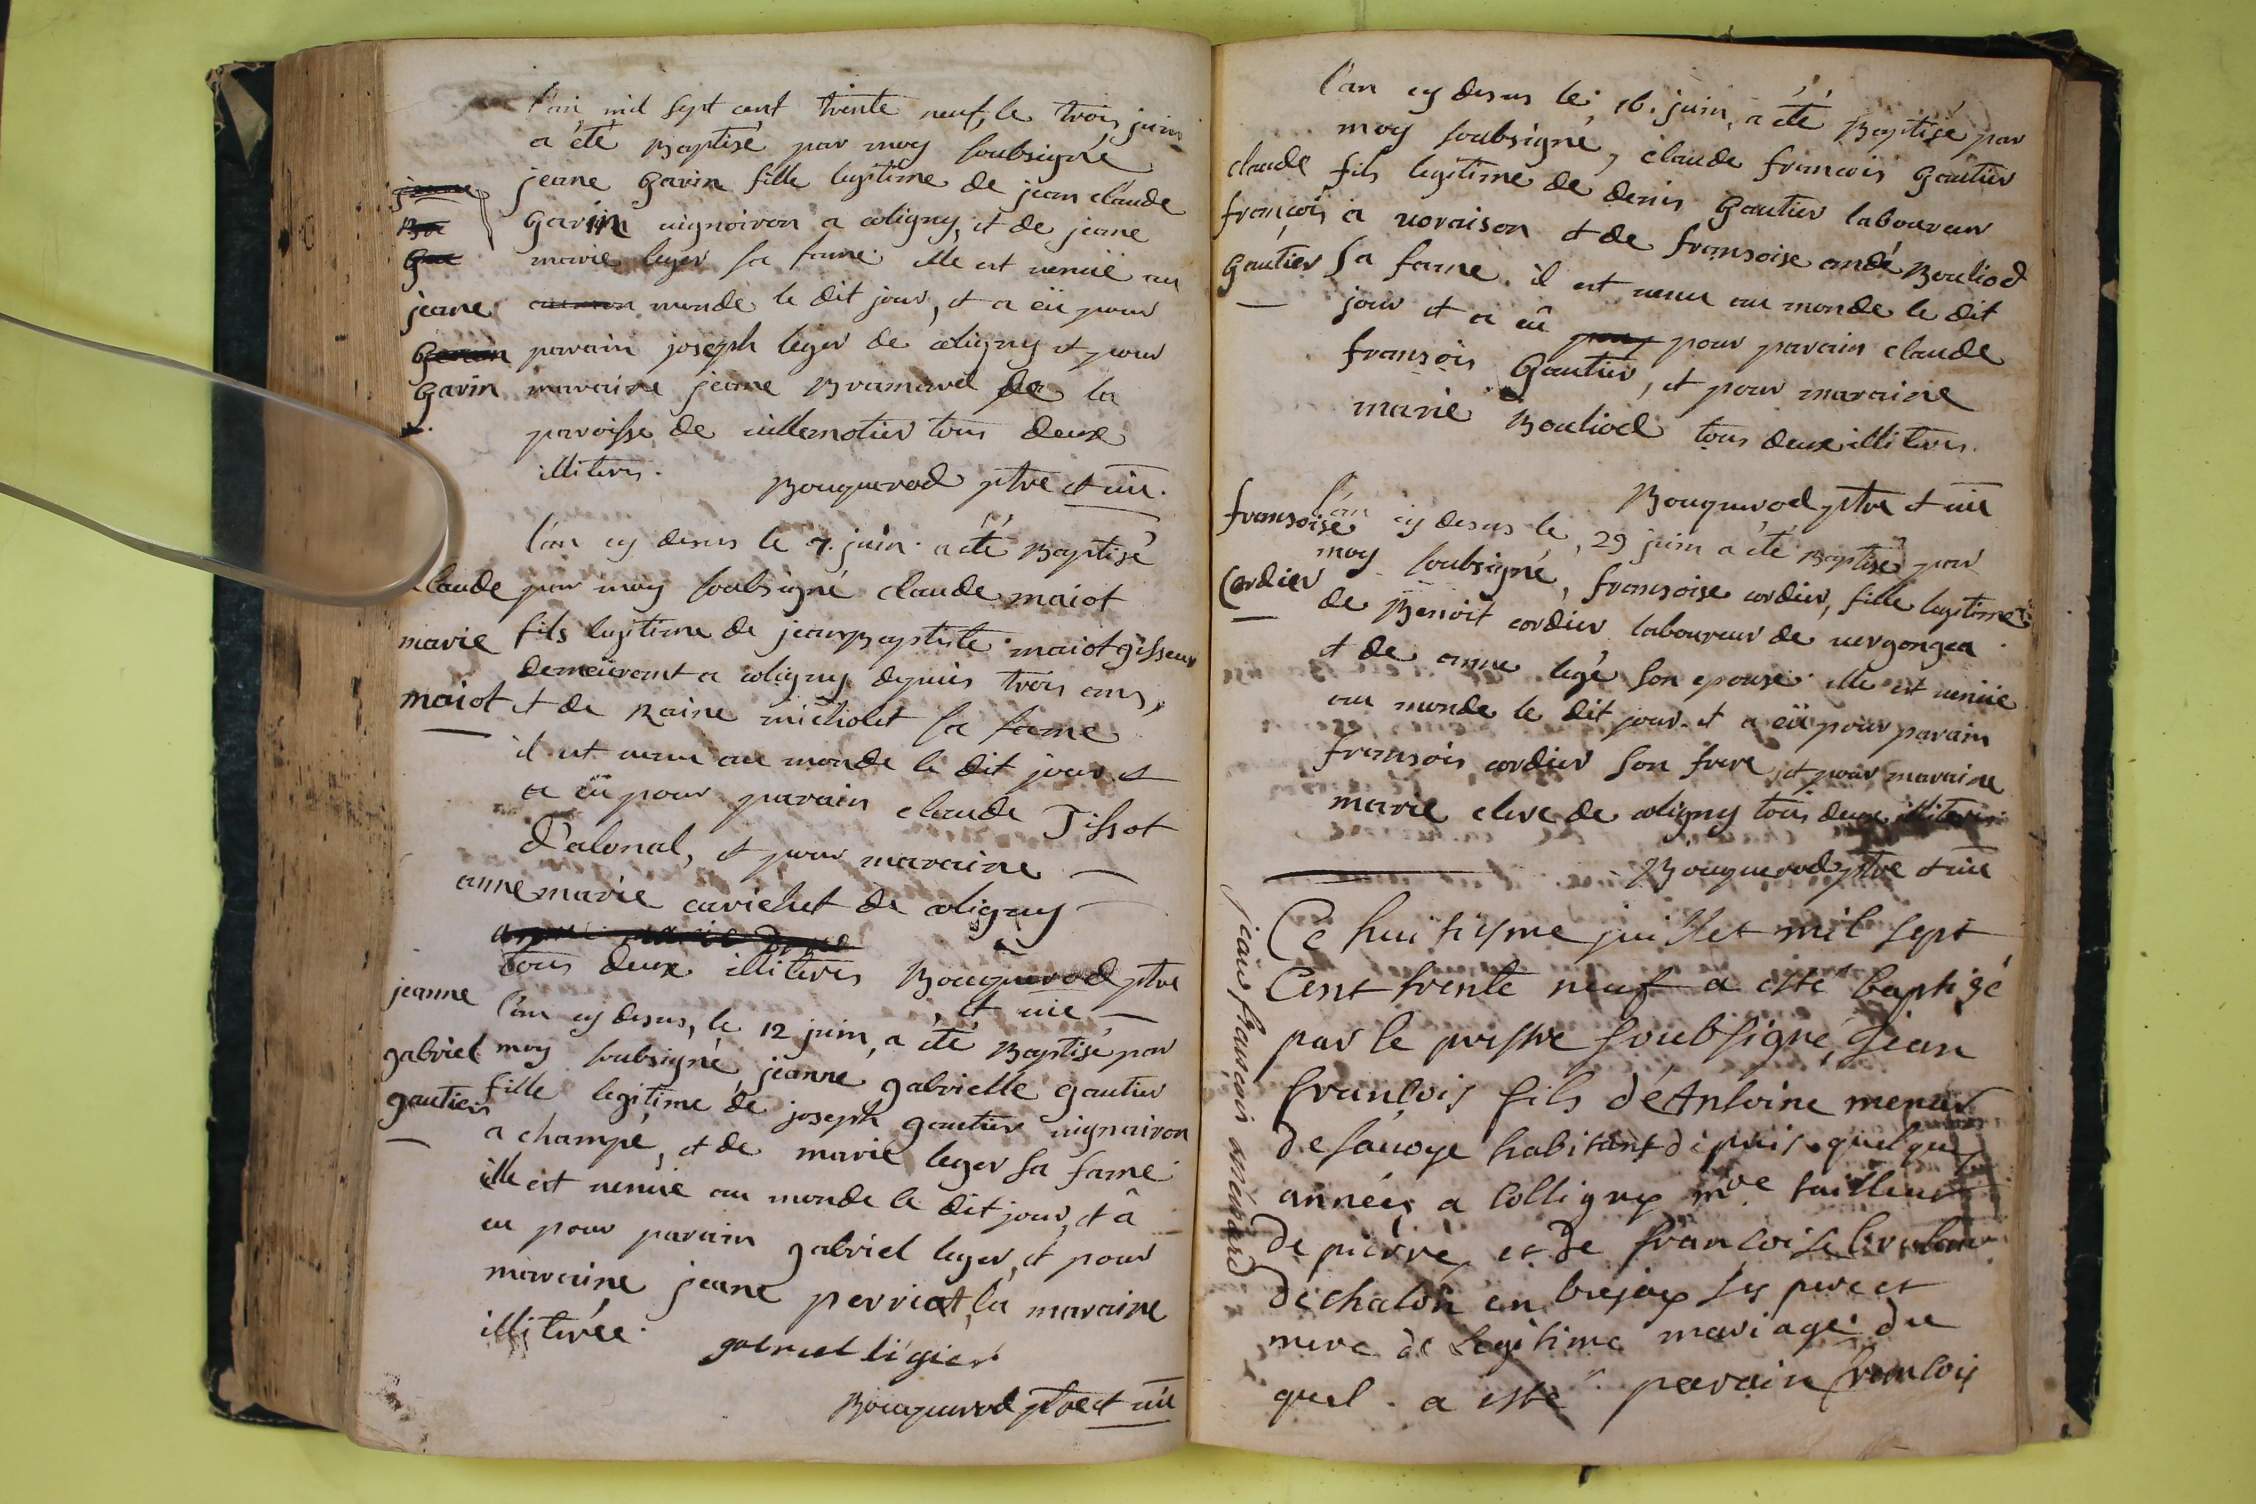 l'an mil sept cent trente neuf, le trois juin
a été Baptisé par moy soubsigné
jeane Gavin fille legitime de jean claude
Gavin vignoiron a coligny, et de jeane
marie leger sa fame elle est venüe au
monde le dit jour, et a eü pour
jeane
parain joseph leger de coligny et pour
Gavin
maraine jeane Bramard de la
paroisse de villemotier tous deux
illiteres.
Bouquerod ptre et vic.
l'an cy desus le 7. juin a été Baptisé
claude
par moy soubsigné claude maiot
marie
fils legitime de jean Baptiste maiot gisseur
demeurant a coligny depuis trois ans,
maiot
et de Raine micholet sa fame
il est venu au monde le dit jour et
a eü pour parain claude Tissot
D'alonal, et pour maraine
anne marie cavichet de coligny
tous deux illiteres Bouquerod ptre
et vic
jeanne
l'an cy desus, le 12 juin, a été Baptisé par
gabriel
moy soubsigné jeanne gabrielle gautier
gautier
fille legitime de joseph gautier vignairon
a champé, et de marie leger sa fame
elle est venüe au monde le dit jour, et â
eu pour parain gabriel leger, et pour
maraine jeane perriat, la maraine
illiterée.
gabriel légier
Bouquerod ptre et vic
l'an cy desus le 16. juin, a été Baptisé par
moy soubsigné, claude francois Gautier
claude
fils legitime de denis Gautier laboureur
françois
a voraison et de fransoise andé Bouliod
Gautier
sa fame. il est venu au monde le dit
jour et a eû pour parain claude
fransois Gautier, et pour maraine
marie Bouliod tous deux illiteres.
Bouquerod ptre et vic
fransoise
l'an cy desus le, 29 juin a été Baptisé par
moy soubsigné, fransoise cordier, fille legitime
Cordier
de Benoit cordier laboureur de vergongea
et de anne legé son epouse elle est venüe
au monde le dit jour. et a eü pour parain
fransois cordier son frere, et pour maraine
marie clere de coligny tous deux illiteres
Bouquerod ptre et vic
jean françois menard
Ce huitiesme juillet mil sept
Cent trente neuf a esté baptisé
par le prestre soubsigné, Jean
françois fils d'Antoine menar
de savoye habitant depuis quelques
années a Colligny mre tailleur
de pierre, et de françoise
de chalon en bresse ses pere et
mere de Legitime mariage du
quel a esté parain françois